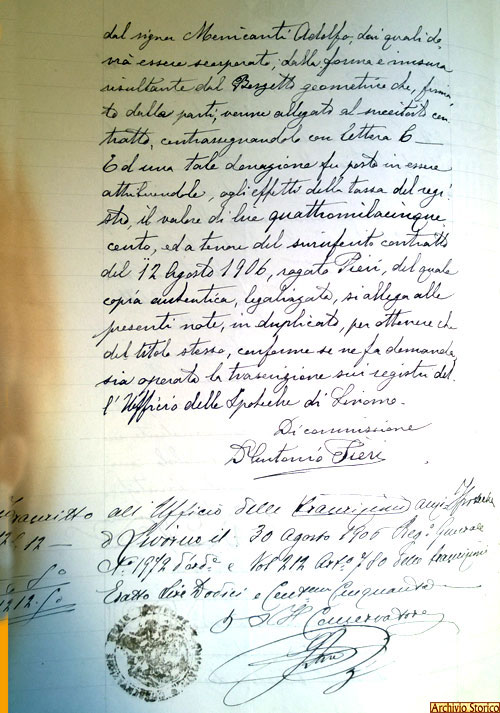 dal signor Menicanti Adolfo, dai quali do-
vrà essere scorporato, dalla forma e misura
risultante dal Bozzetto geometrico che, firma-
to dalle parti, venne allegato al succitato con-
tratto, contrassegnandolo con lettera C—
Ed una tale donazione fu posta in essere
attribuendole, agli effetti della tassa del regi-
stro, il valore di lire quattromilacinque
cento, ed a tenore del surriferito contratto
del 12 Agosto 1906, rogato Pieri, del quale
copia autentica, legalizzata, si allega alle
presenti note, in duplicato, per ottenere che
del titolo stesso, conforme se ne fa demanda,
sia operata la trascrizione sui registri del-
l'Ufficio delle Ipoteche di Livorno.
Di commissione
Dr Antonio Pieri
all'Ufficio delle Ipoteche
di Livorno il 30 Agosto 1906 Regº Generale
Nº 1972 d'ord.e e Vol 212 Artº 780 delle trascrizioni
Esatte Lire Dodici e Centesimi Cinquanta
Il Conservatore
12 12. 50
Archivio Storico